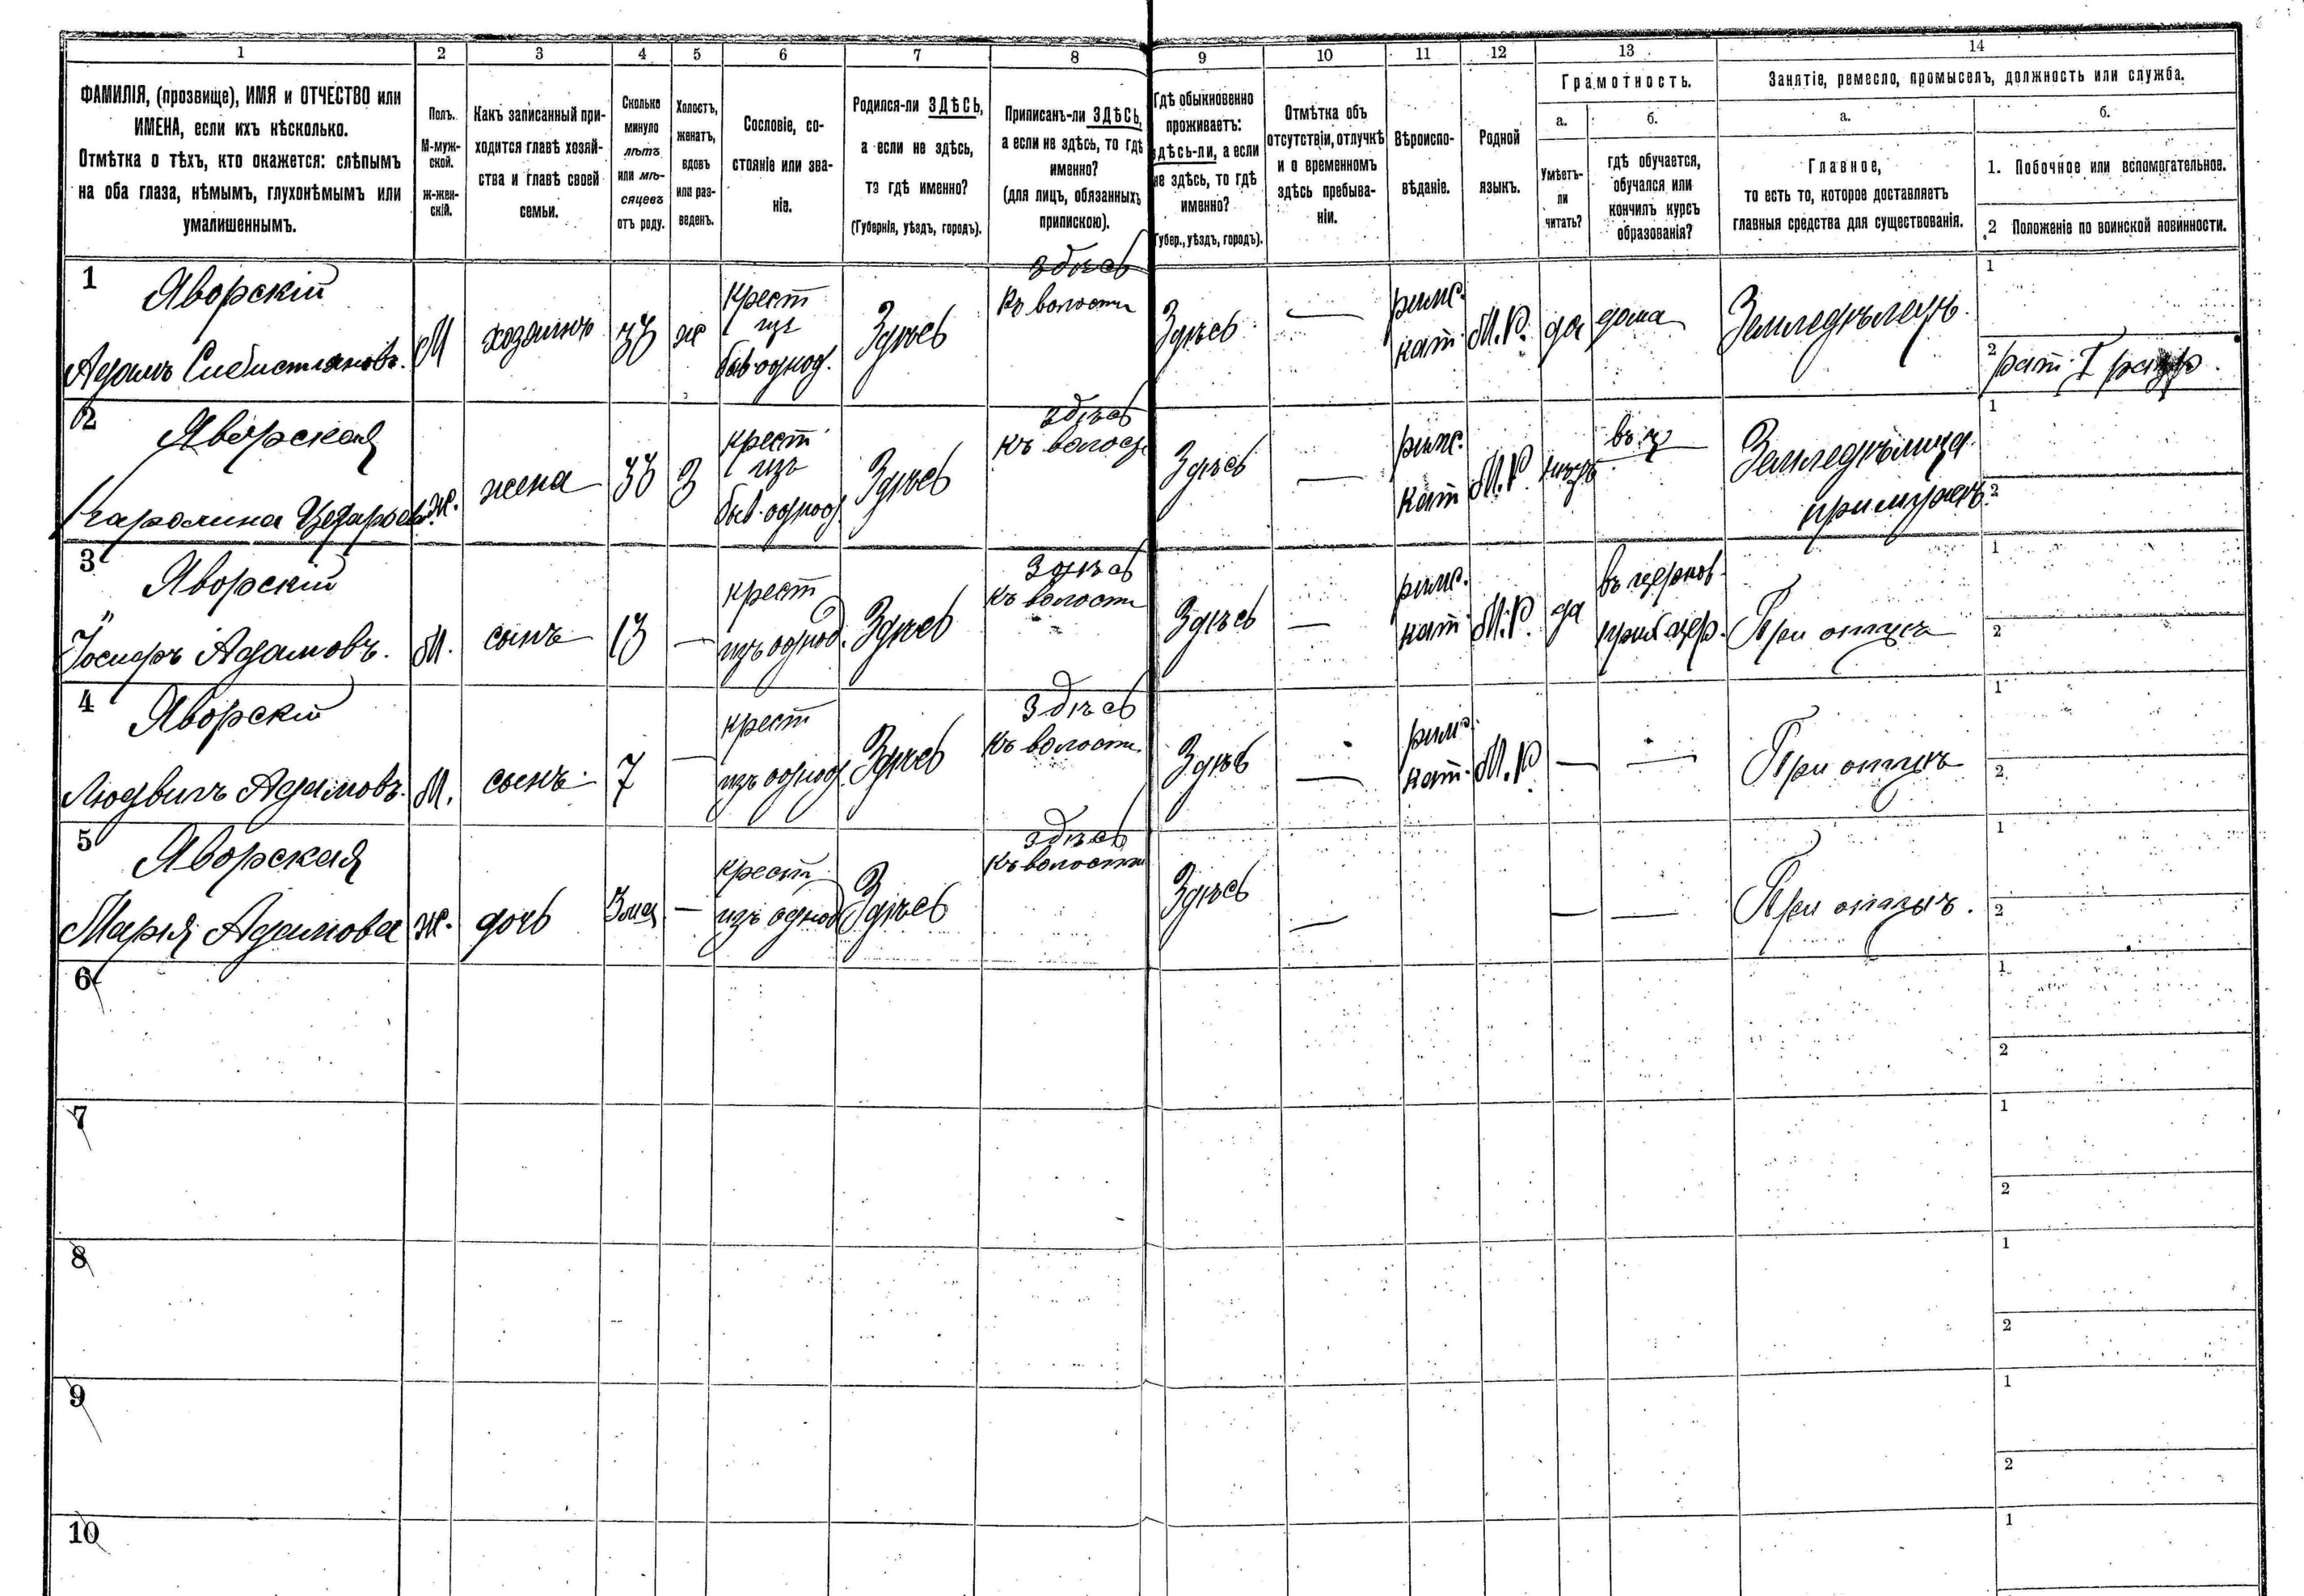 1 2 3 4 5 6 7 8 9 10 11 12 13 14
ФАМИЛІЯ, (прозвище), ИМЯ и ОТЧЕСТВО или
ИМЕНА, если ихъ нѣсколько.
Отмѣтка о тѣхъ, кто окажется: слѣпымъ
на оба глаза, нѣмымъ, глухонѣмымъ или
умалишеннымъ.
Полъ.
М-муж-
ской.
ж-жен-
скій.
Какъ записанный при-
ходится главѣ хозяй-
ства и главѣ своей
семьи.
Сколько
минуло
лѣтъ
или мѣ-
сяцевъ
отъ роду.
Холостъ,
женатъ,
вдовъ
или раз-
веденъ.
Сословіе, со-
стояніе или зва-
ніе.
Родился-ли ЗДѢСЬ,
а если не здѣсь,
то гдѣ именно?
(Губернія, уѣздъ, городъ).
Приписанъ-ли ЗДѢСЬ,
а если не здѣсь, то гдѣ
именно?
(для лицъ, обязанныхъ
припискою).
Гдѣ обыкновенно
проживаетъ:
здѣсь-ли, а если
не здѣсь, то гдѣ
именно?
(Губер., уѣздъ, городъ).
Отмѣтка объ
отсутствіи, отлучкѣ
и о временномъ
здѣсь пребыва-
ніи.
Вѣроиспо-
вѣданіе.
Родной
языкъ.
Грамотность.
а.
Умѣетъ-
ли
читать?
б.
гдѣ обучается,
обучался или
кончилъ курсъ
образованія?
Занятіе, ремесло, промыселъ, должность или служба.
а.
Главное,
то есть то, которое доставляетъ
главныя средства для существованія.
б.
1. Побочное или вспомогательное.
2 Положеніе по воинской повинности.
1
Яворскій
Адамъ Сибистіяновъ.
М
хозяинъ
33
ж
крест
изъ
быв однод.
Здѣсь
здѣсь
къ волости
Здѣсь
—
римс.
кат.
М.Р.
да
дома
Земледѣлецъ.
1
2 рат I разр.
2
Яворская
Каролина
ж.
жена
33
З
крест
изъ
быв. однод
Здѣсь
здѣсь
къ волос
Здѣсь
—
римс.
кат
М.Р
Земледѣлица
при мужѣ
1
2
3
Яворскій
Адамовъ.
М.
сынъ
13
—
крест
изъ однод.
Здѣсь
здѣсь
къ волости
Здѣсь
—
римс.
кат.
М.Р.
да
въ церков.
При отцѣ
1
2
4
Яворскій
Людвигъ Адамовъ.
М.
сынъ
7
—
крест
изъ однод.
Здѣсь
здѣсь
къ волости
Здѣсь
—
римс.
кат.
М.Р
—
—
При отцѣ
1
2
5
Яворская
Марія Адамова
ж.
дочь
3 мѣс
—
крест
изъ однод
Здѣсь
здѣсь
къ волости
Здѣсь
—
—
—
При отцѣ.
1
2
6
1
2
7
1
2
8
1
2
9
1
2
10
1